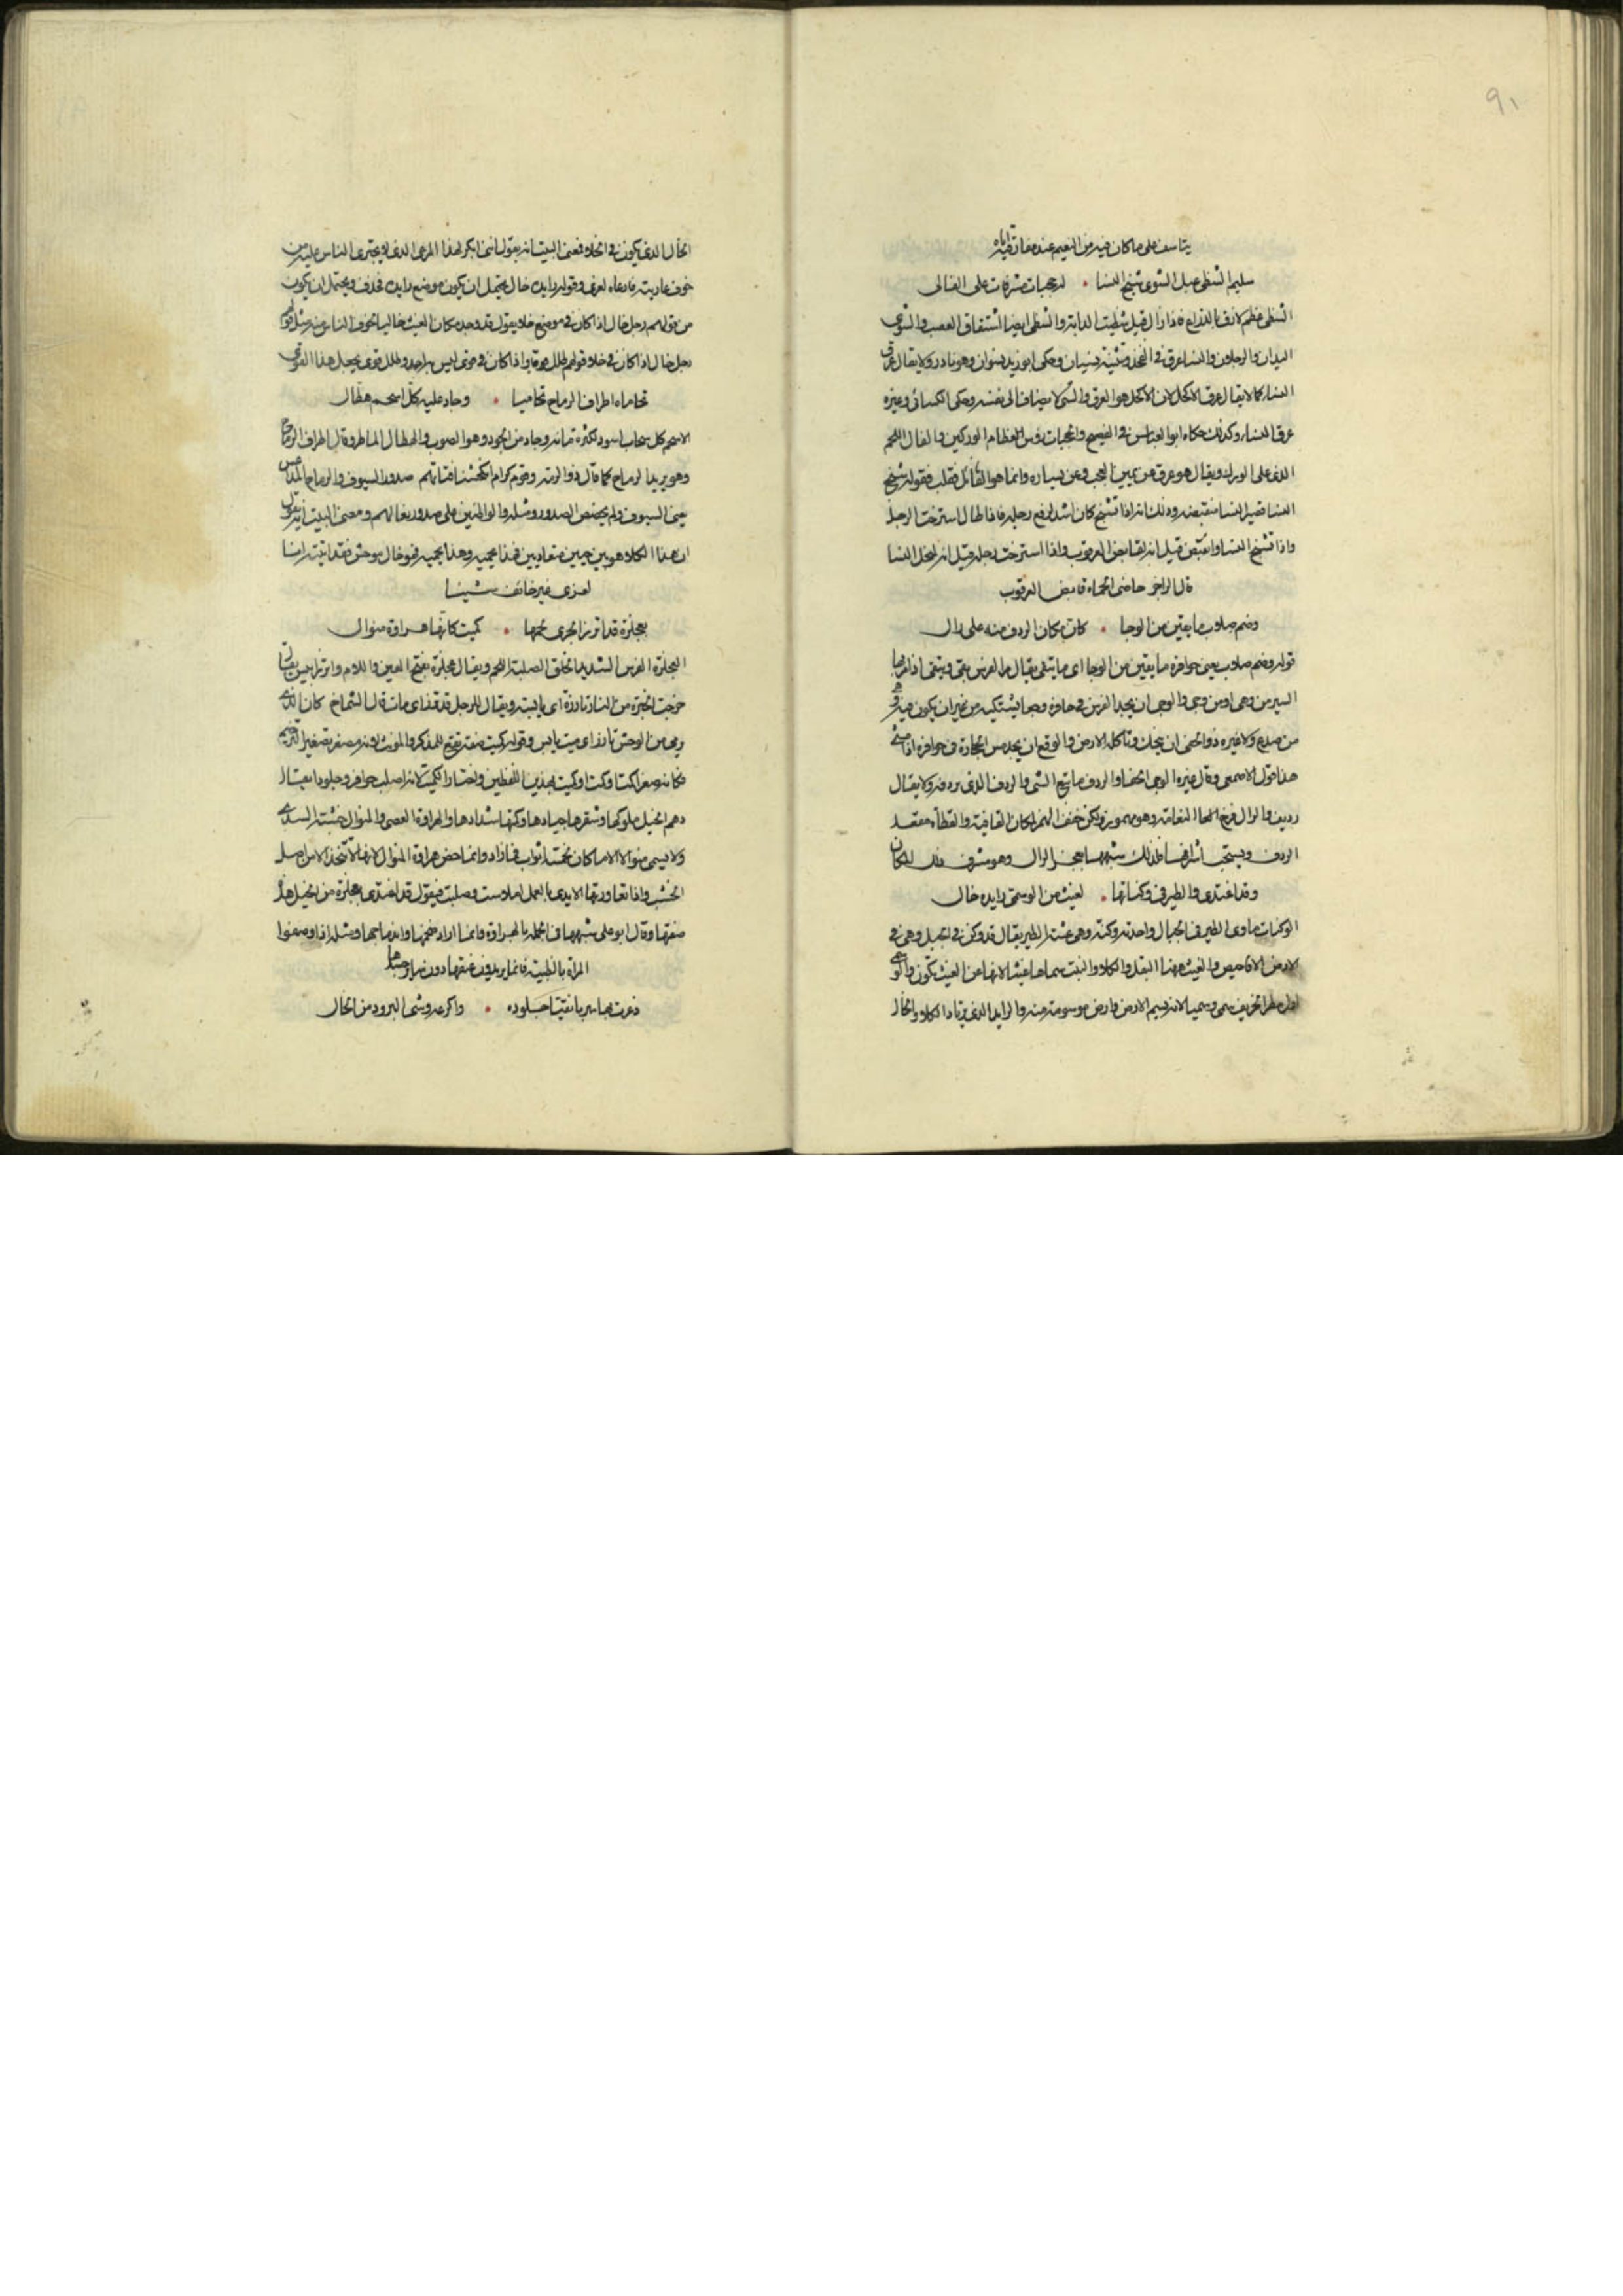 91
يتاسف على ما كان فيه من النعيم عند مفارقته اياه
سليم الشظى عبل الشوى شنج النسا • له حجبات مشرفات على الفالى
الشظى عظم لازق بالذراع فاذا زال قيل شظيت الدابة والشظى ايضا انشقاق العصب والشوى
اليدان والرجلان والنسا عرق فى الفخذ وتثنيته نسيان وحكى ابو زيد نسوان وهو نادر ولا يقال عرق
النسا كما لا يقال عرق الاكحل لان الاكحل هو العرق والشى لا يضاف الى نفسه وحكى الكسائى وغيره
عرق النسا وكذلك حكاه ابو العباس فى الفصيح والحجبات روس العظام الوركين والفال اللحم
الذى على الورك ويقال هو عرق عن يمين العجب وعن يساره وانما هو الفائل فقلب فقوله شنج
النسا قصير النسا منقبضه وذلك انه اذا تشنج كان اشد لرفع رجليه فاذا طال استرخت الرجل
واذا تشنج النسا وانقبض قيل انه لقابض العرقوب واذا استرخت رجله قيل انه لمخل النسا
قال الراجز حاضى الحماه قابض العرقوب
وصم صلاب ما يقين من الوجا • كان مكان الردف منه على رال
قوله وصم صلاب يعنى حوافره ما يقين من الوجا اى ما يتقى يقال مر الفرس يقى ويتقى اذا
السير من وهى او من وجى والوجى ان يجد الفرس فى حافره وجعا يشتكيه من غير ان يكون فيه
من صدع ولا غيره والحفى ان يحك وتاكله الارض والوقع ان يجد مس الحجارة فى حوافره
هذا قول الاصمعى وقال غيره الوجى الحفا والردف ما تبع الشى والردف الذى يردفه ولا يقال
رديف والرال فرخ النعامة وهو مهموز ولكن خفف الهمز لمكان القافية والقطاة مقعد
الردف ويستحب اشرافها فلذلك شبهها بعجز الرال وهو مشرف ذلك المكان
وقد اغتدى والطير فى وكناتها • لغيث من الوسمى رايده خال
الوكنات ماوى الطير فى الجبال واحدته وكنة وهى عشة الطير يقال قد وكن فى الجبل وهى فى
الارض الافاحيص والغيث ههنا البقل والكلا والنبت سماها غيثا لانها عن الغيث تكون
اول مطر الخريف سمى وسميا لانه يسم الارض وارض موسومة منه والرايد الذى يرتاد الكلا والخال
الخال الذى يكون فى الخلا فمعنى البيت انه يقول اننى ابكر لهذا المرعى الذى لا يجترى الناس عليه من
خوف عاديته فارعاه لعزى وقوله رايده خال يحتمل ان يكون موضع رايده فحذف ويحتمل ان يكون
من قولهم رجل خال اذا كان فى موضع خلا يقول قد وجده كان الغيث خاليا تخوف الناس منه ومثل قولهم
رجل خال اذا كان فى خلا قولهم
تحاماه اطراف الرماح تحاميا • وجاد عليه كل اسحم هطال
الاسحم كل سحاب اسود لكثرة مائه وجاد من الجود وهو الصوب والهطال الماطر وقال اطراف الرماح
وهو يريد الرماح كما قال ذو الرمة وقوم كرام انكحتنا فتاتهم صدور السيوف والرماح المداعس
يعنى السيوف ولم يخصص الصدور ومثله والواطئين على صدور نعالهم ومعنى البيت انه يقول
ان هذا الكلا هو بين حيين متعاديين فهذا يحميه وهذا يحميه فهو خال موحش فقد اتيته امنا
لعزى غير خائف شيئا
بعجلزة قد اترز الجرى لحمها • كميت كانها هراوة منوال
العجلزة الفرس الشديدة الخلق الصلبة اللحم ويقال عجلزة بفتح العين واللام واترز ايبس يقال
خرجت الخبزة من النار تارزة اى يابسة ويقال للرجل قد ترز اى مات قال الشماخ كان الذى
يرمى من الوحش تارز اى ميت يابس وقوله كميت صفة تقع للمذكر والمونث لانه مصغر تصغير الترخيم
فكانه صغر اكمتا وكمتا وكميت بهذين اللفظين واختار الكميت لانه اصلب حوافر وجلودا يقال
دهم الخيل ملوكها وشقرها جيادها وكمتها شدادها والهراوة العصى والمنوال خشبة السدى
ولا يسمى منوالا الا ما كان تحته اثواب فما زاد وانما خص هراوة المنوال لانها لا تتخذ الا من اصلب
الخشب واذا تعاورتها الايدى بالعمل املاست وصلبت فيقول قد اغتدى بعجلزة من الخيل هذه
صفتها وقال ابو على شبهها فى الجملة بالهراوة وانما اراد ضخمها واندماجها ومثله اذا وصفوا
المراة بالظبية فانما يريدون عنقها دون ساير جسمها
ذعرت بها سربا نقيا جلوده • واكرعه وشى البرود من الخال